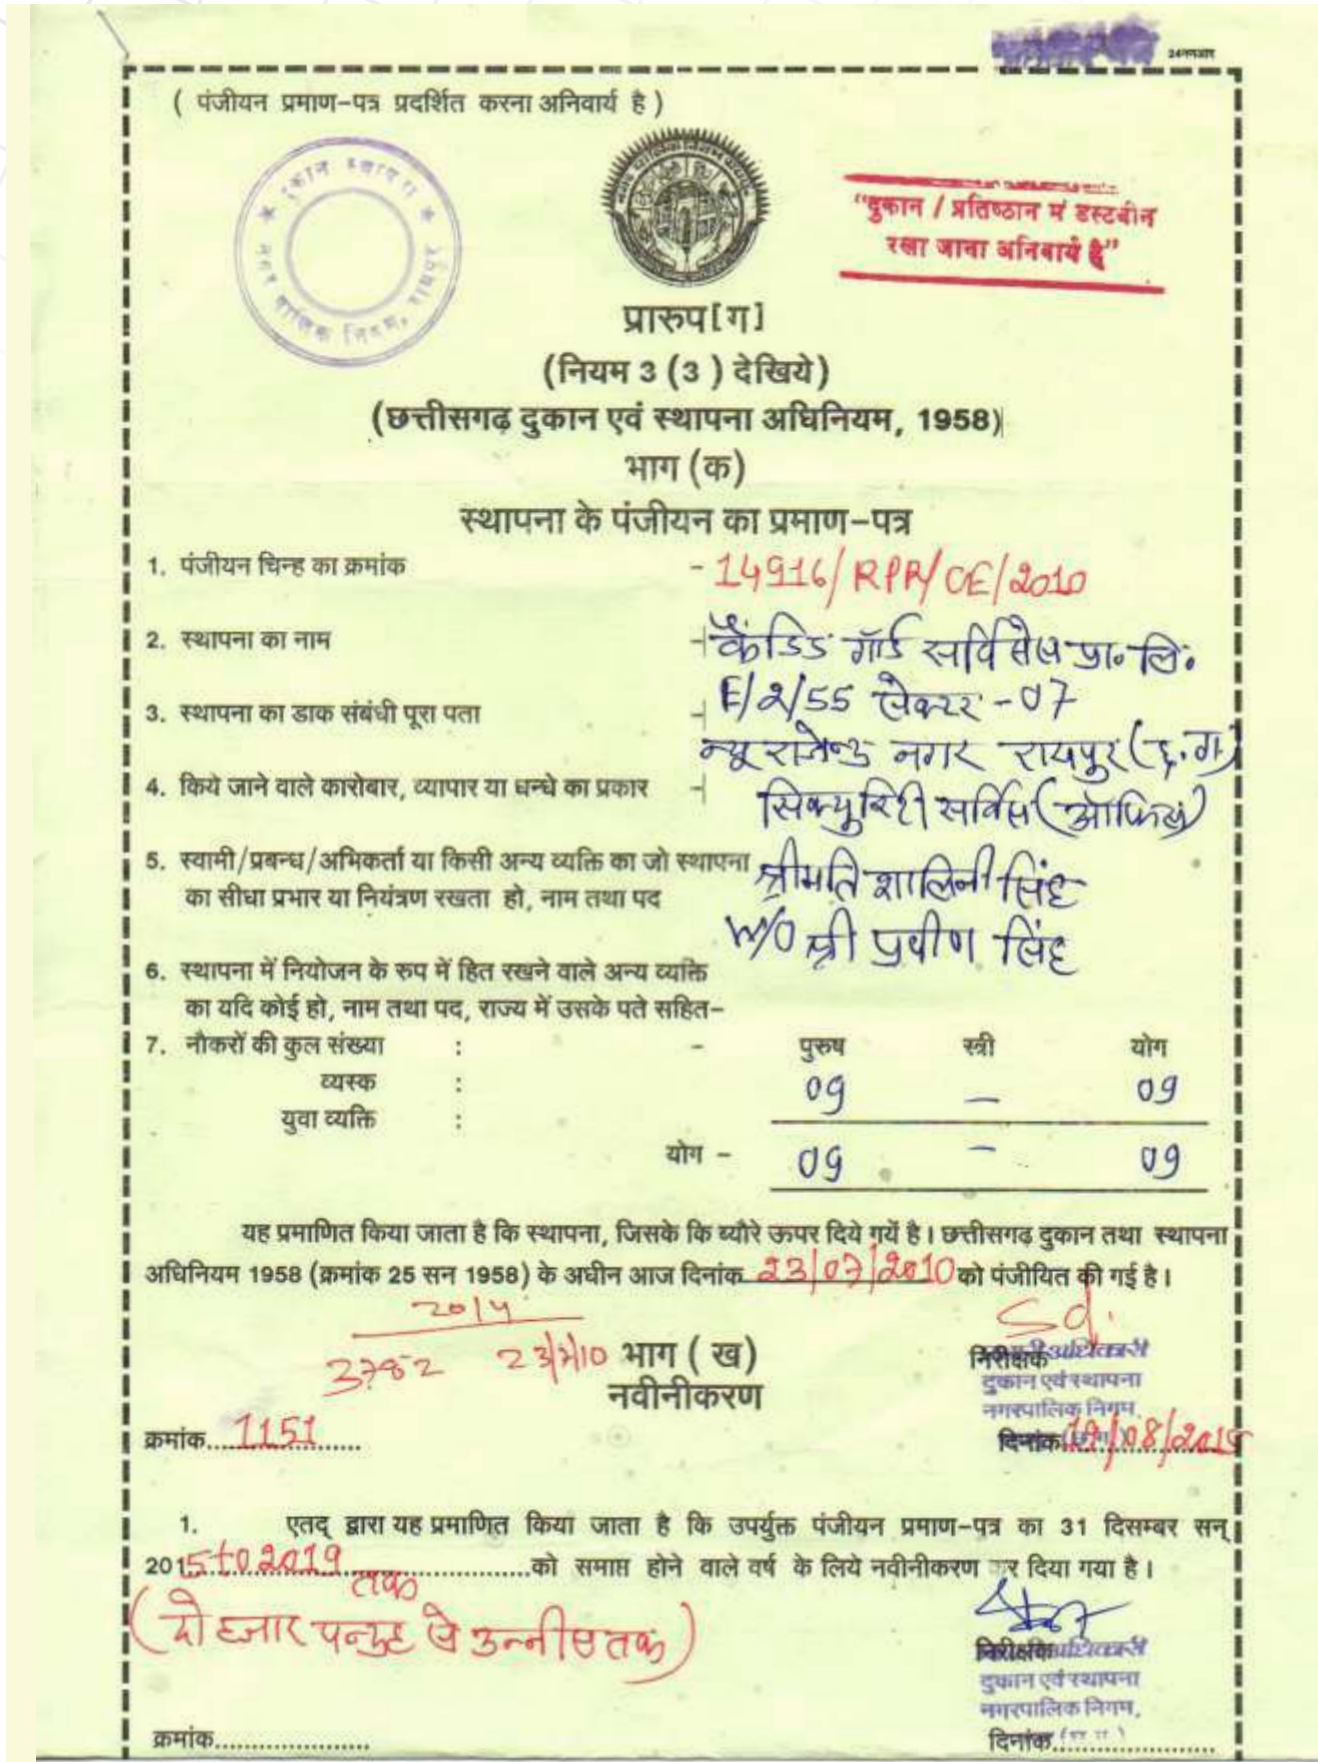 ( पंजीयन प्रमाण-पत्र प्रदर्शित करना अनिवार्य है )
दुकान स्थापना
नगर पालिक निगम, रायपुर
"दुकान / प्रतिष्ठान में डस्टबीन
रखा जाना अनिवार्य है"
प्रारुप[ग]
(नियम 3 (3 ) देखिये)
(छत्तीसगढ़ दुकान एवं स्थापना अधिनियम, 1958)
भाग (क)
स्थापना के पंजीयन का प्रमाण-पत्र
1. पंजीयन चिन्ह का क्रमांक - 14916/RPR/CE/2010
2. स्थापना का नाम - कैंडिड गॉर्ड सर्विसेस प्रा. लि.
3. स्थापना का डाक संबंधी पूरा पता - E/2/55 सेक्टर - 07
न्यू राजेन्द्र नगर रायपुर (छ.ग)
4. किये जाने वाले कारोबार, व्यापार या धन्धे का प्रकार - सिक्युरिटी सर्विस (ऑफिस)
5. स्वामी/प्रबन्ध/अभिकर्ता या किसी अन्य व्यक्ति का जो स्थापना श्रीमति शालिनी सिंह
का सीधा प्रभार या नियंत्रण रखता हो, नाम तथा पद W/O श्री प्रवीण सिंह
6. स्थापना में नियोजन के रुप में हित रखने वाले अन्य व्यक्ति
का यदि कोई हो, नाम तथा पद, राज्य में उसके पते सहित-
7. नौकरों की कुल संख्या : - पुरुष स्त्री योग
व्यस्क : 09 — 09
युवा व्यक्ति :
योग - 09 - 09
यह प्रमाणित किया जाता है कि स्थापना, जिसके कि ब्यौरे ऊपर दिये गयें है। छत्तीसगढ़ दुकान तथा स्थापना
अधिनियम 1958 (क्रमांक 25 सन 1958) के अधीन आज दिनांक 23/07/2010 को पंजीयित की गई है।
2014
3782 23/7/10
Sd.
भाग ( ख)
नवीनीकरण
निरीक्षक
दुकान एवं स्थापना
नगरपालिक निगम,
क्रमांक 1151 दिनांक 17/08/2015
1. एतद् द्वारा यह प्रमाणित किया जाता है कि उपर्युक्त पंजीयन प्रमाण-पत्र का 31 दिसम्बर सन्
2015 to 2019 तक को समाप्त होने वाले वर्ष के लिये नवीनीकरण कर दिया गया है।
(दो हजार पन्द्रह से उन्नीस तक)
निरीक्षक
दुकान एवं स्थापना
नगरपालिक निगम,
क्रमांक..................... दिनांक.....................